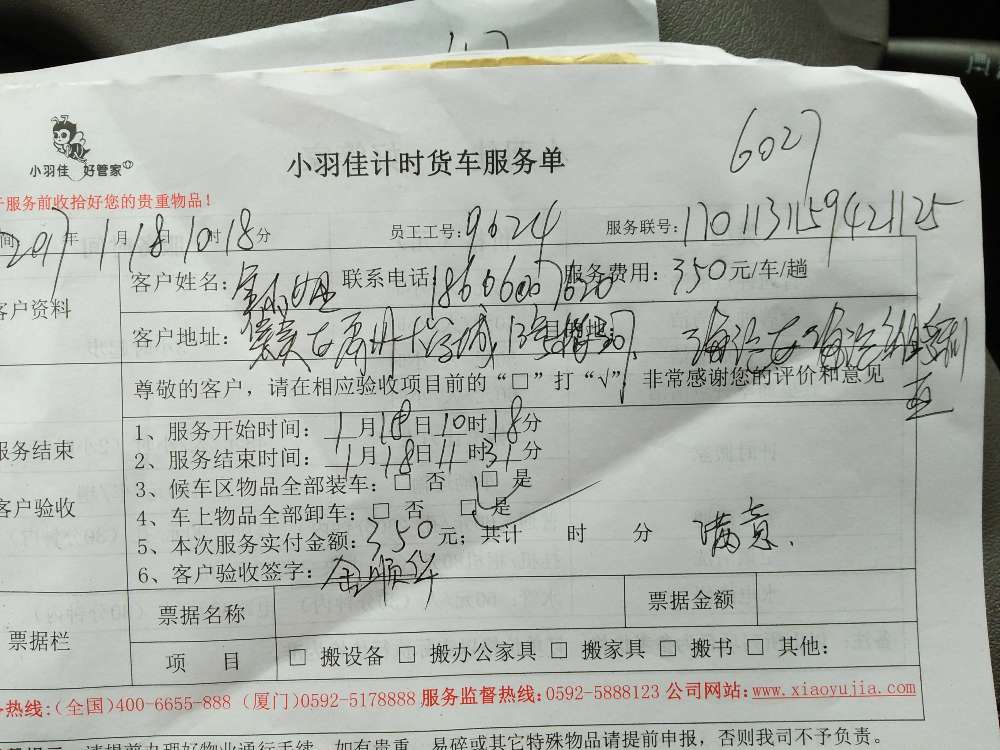 6027
小羽佳 好管家
小羽佳计时货车服务单
服务前收拾好您的贵重物品！
间 2017年1月18日10时18分 员工工号:9624 服务联号:1701131159421125
客户资料
客户姓名: 联系电话:18606007620 服务费用:350元/车/趟
客户地址: 大学城 目的地:
尊敬的客户，请在相应验收项目前的“□”打“√”，非常感谢您的评价和意见
服务结束
客户验收
1、服务开始时间：1月18日10时18分
2、服务结束时间：1月18日11时31分
3、候车区物品全部装车：□ 否 □ 是
4、车上物品全部卸车：□ 否 □ 是
5、本次服务实付金额：350元；共计 时 分 满意.
6、客户验收签字：金顺华
票据栏
票据名称 票据金额
项 目 □ 搬设备 □ 搬办公家具 □ 搬家具 □ 搬书 □ 其他:
热线:(全国)400-6655-888 (厦门)0592-5178888 服务监督热线:0592-5888123 公司网站:www.xiaoyujia.com
请提前办理好物业通行手续，如有贵重、易碎或其它特殊物品请提前申报，否则我司不予负责。